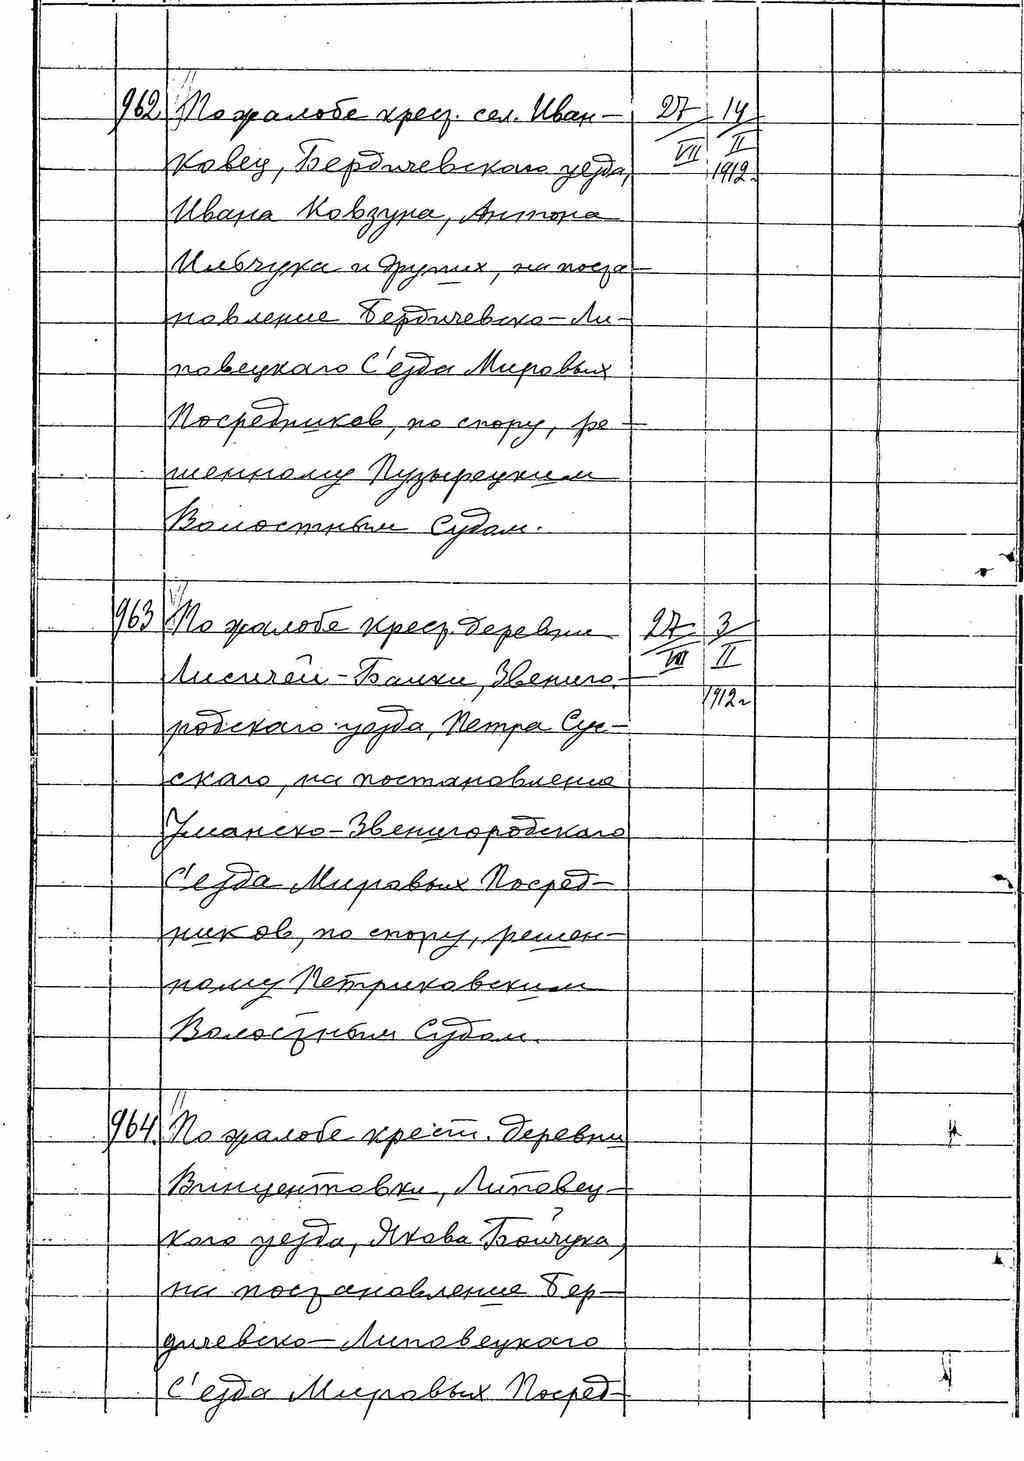 962 По жалобе крест. сел. Иван- 27/VII 14/II 1912.
ковец, Бердичевскаго уезда,
Ивана Ковзуна, Антона
Ильчука и других, на поста-
новление Бердичевско-Ли-
повецкаго С'езда Мировых
Посредников, по спору, ре-
шенному Пузырецким
Волостным Судом.
963 По жалобе крест. деревни 27/VII 3/II 1912 г
Лисичей-Балки, Звениго-
родскаго уезда, Петра Сус-
скаго, на постановление
Уманско-Звенигородскаго
С'езда Мировых Посред-
ников, по спору, решен-
ному Петриковским
Волостным Судом.
964. По жалобе крест. деревни
Винцентовки, Липовец-
каго уезда, Якова Бойчука,
на постановление Бер-
дичевско-Липовецкаго
С'езда Мировых Посред-